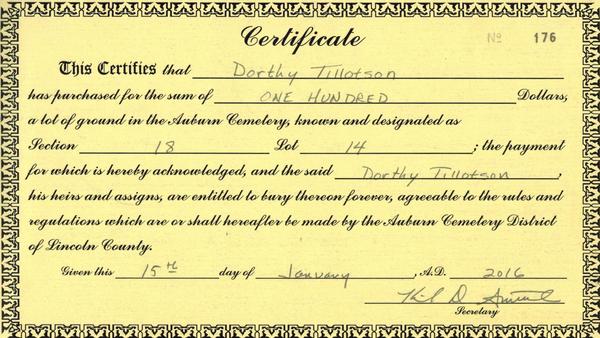 Certificate
Nº 176
This Certifies that Dorthy Tillotson
has purchased for the sum of ONE HUNDRED Dollars,
a lot of ground in the Auburn Cemetery, known and designated as
Section 18 Lot 14 ; the payment
for which is hereby acknowledged, and the said Dorthy Tillotson,
his heirs and assigns, are entitled to bury thereon forever, agreeable to the rules and
regulations which are or shall hereafter be made by the Auburn Cemetery District
of Lincoln County.
Given this 15th day of January, A.D. 2016
Secretary